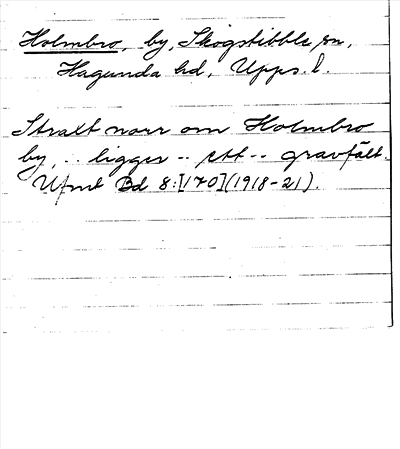 Holmbro, by, Skogstibble sn,
Hagunda hd, Upps. l.
Straxt norr om Holmbro
by, .. ligger .. ett .. gravfält.
Ufmt Bd 8:[170](1918-21).